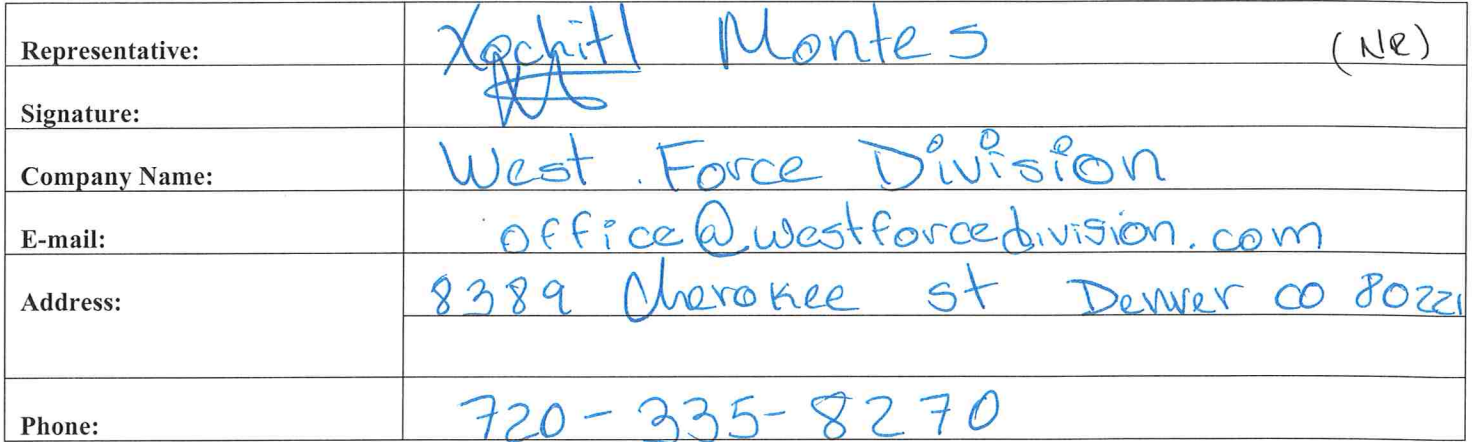 Representative: Xochitl Montes (NR)
Signature:
Company Name: West. Force Division
E-mail: office@westforcedivision.com
Address: 8389 Cherokee st Denver co 80221
Phone: 720-335-8270